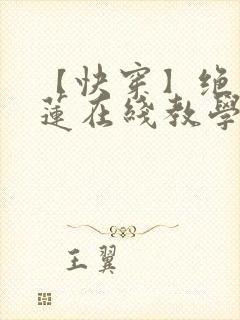 【快穿】绝
莲在綫教學
王翼